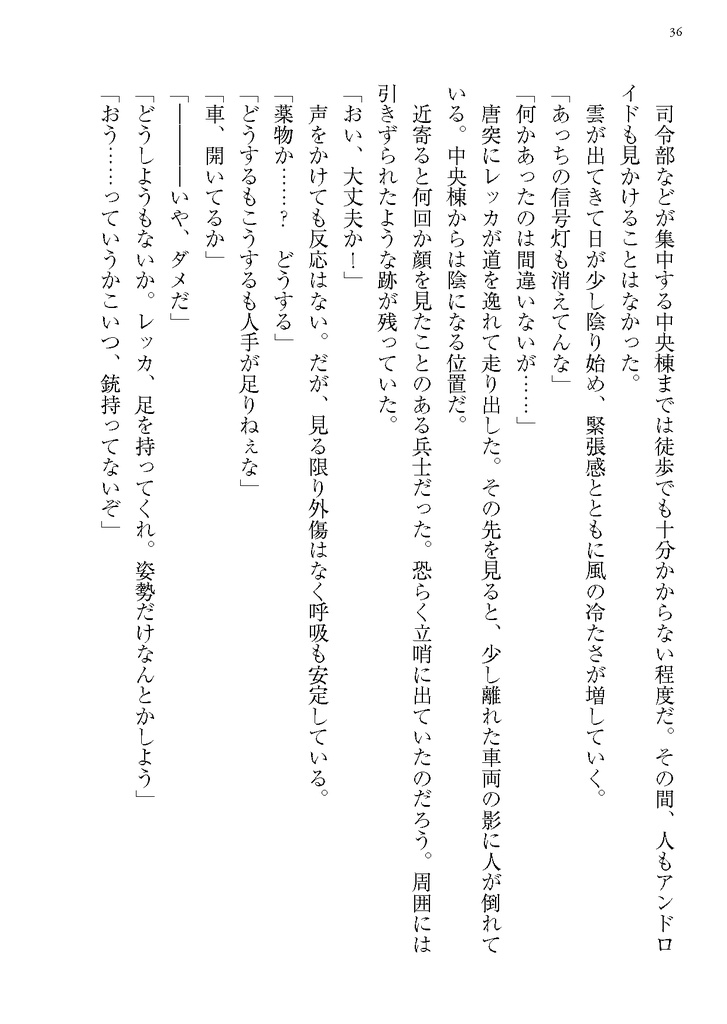 36
　司令部などが集中する中央棟までは徒歩でも十分かからない程度だ。その間、人もアンドロ
イドも見かけることはなかった。
　雲が出てきて日が少し陰り始め、緊張感とともに風の冷たさが増していく。
「あっちの信号灯も消えてんな」
「何かあったのは間違いないが……」
　唐突にレッカが道を逸れて走り出した。その先を見ると、少し離れた車両の影に人が倒れて
いる。中央棟からは陰になる位置だ。
　近寄ると何回か顔を見たことのある兵士だった。恐らく立哨に出ていたのだろう。周囲には
引きずられたような跡が残っていた。
「おい、大丈夫か！」
　声をかけても反応はない。だが、見る限り外傷はなく呼吸も安定している。
「薬物か……？　どうする」
「どうするもこうするも人手が足りねぇな」
「車、開いてるか」
「――――いや、ダメだ」
「どうしようもないか。レッカ、足を持ってくれ。姿勢だけなんとかしよう」
「おう……っていうかこいつ、銃持ってないぞ」